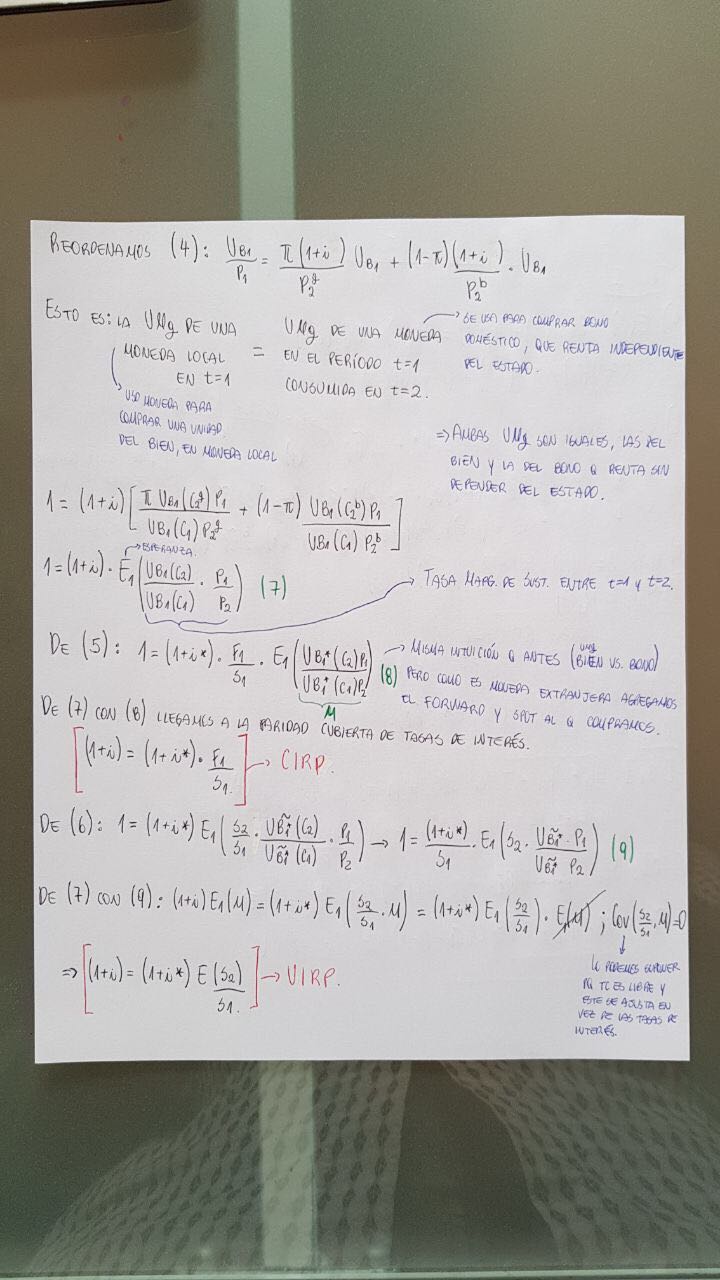 REORDENAMOS (4): U_B1/P_1 = π(1+i)/P_2^g U_B1 + (1-π)(1+i)/P_2^b · U_B1
ESTO ES: LA UMg DE UNA MONEDA LOCAL EN t=1 = UMg DE UNA MONEDA EN EL PERÍODO t=1 CONSUMIDA EN t=2.
→ SE USA PARA COMPRAR BONO
DOMÉSTICO, QUE RENTA INDEPENDIENTE
DEL ESTADO.
USO MONEDA PARA
COMPRAR UNA UNIDAD
DEL BIEN, EN MONEDA LOCAL
⇒ AMBAS UMg SON IGUALES, LAS DEL
BIEN Y LA DEL BONO Q RENTA SIN
DEPENDER DEL ESTADO.
1 = (1+i)[π U_B1(C_2^g) P_1 / U_B1(C_1) P_2^g + (1-π) U_B1(C_2^b) P_1 / U_B1(C_1) P_2^b]
→ ESPERANZA.
1 = (1+i) · E_1(U_B1(C_2)/U_B1(C_1) · P_1/P_2) (7)
→ TASA MARG. DE SUST. ENTRE t=1 Y t=2.
DE (5): 1 = (1+i*) · F_1/S_1 · E_1(U_B1*(C_2)P_1 / U_B1*(C_1)P_2) (8)
M
→ MISMA INTUICIÓN Q ANTES (UMg BIEN VS. BONO)
PERO COMO ES MONEDA EXTRANJERA AGREGAMOS
EL FORWARD Y SPOT AL Q COMPRAMOS.
DE (7) CON (8) LLEGAMOS A LA PARIDAD CUBIERTA DE TASAS DE INTERÉS.
[(1+i) = (1+i*) · F_1/S_1.] → CIRP.
DE (6): 1 = (1+i*) E_1(S_2/S_1 · U_B̃1*(C_2)/U_B̃1*(C_1) · P_1/P_2) → 1 = (1+i*)/S_1 · E_1(S_2 · U_B̃1* · P_1 / U_B̃1* P_2) (9)
DE (7) CON (9): (1+i) E_1(M) = (1+i*) E_1(S_2/S_1 · M) = (1+i*) E_1(S_2/S_1) · E_1(M) ; Cov(S_2/S_1, M)=0
⇒ [(1+i) = (1+i*) E(S_2)/S_1.] → UIRP.
PODEMOS SUPONER
TC ES LIBRE Y
ESTE SE AJUSTA EN
VEZ DE LAS TASAS DE
INTERÉS.